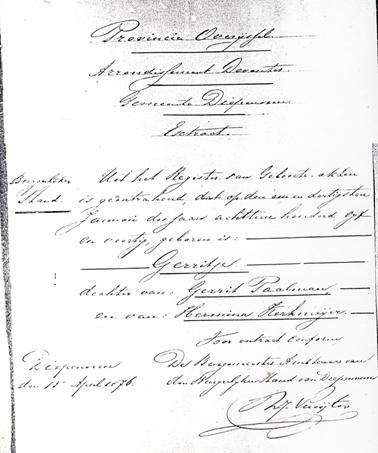 Provincie Overijssel
Arrondissement Deventer
Gemeente Diepenveen
Extract.
Burgerlijke Stand.
Uit het Register van Geboorte-akten
is geëxtraheerd, dat op den een en dertigsten
Januari des jaars achttien honderd vijf
en veertig, geboren is:
Gerritje
dochter van: Gerrit Paalman
en van: Hermina Kerkmeijer.
Voor extract conform
Diepenveen
den 15 April 1876.
De Burgemeester Ambtenaar van
den Burgerlijken Stand van Diepenveen